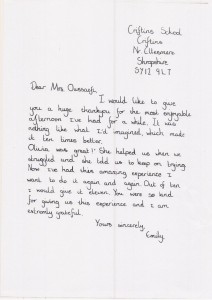 Criftins School
Criftins
Nr Ellesmere
Shropshire
SY12 9LT
Dear Mrs
I would like to give
you a huge thankyou for the most enjoyable
afternoon I've had for a while. It was
nothing like what I'd imagined, which made
it ten times better.
Olivia was great! She helped us when we
struggled and she told us to keep on trying.
Now I've had this amazing experience I
want to do it again and again. Out of ten
I would give it eleven. You were so kind
for giving us this experience and I am
extremly grateful.
Yours sincerely,
Emily.